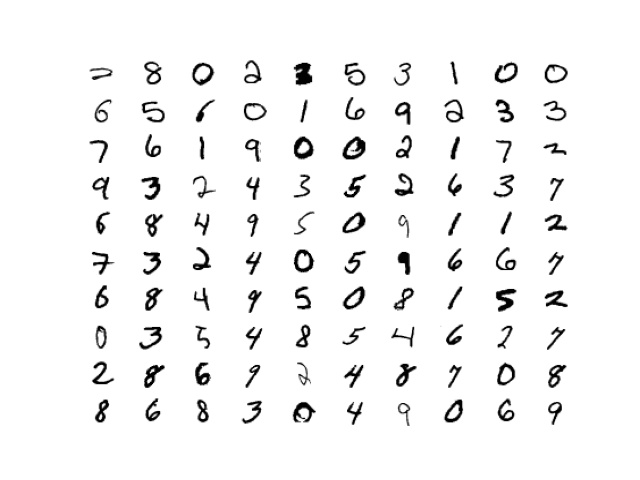 2 8 0 2 3 5 3 1 0 0
6 5 6 0 1 6 9 2 3 3
7 6 1 9 0 0 2 1 7 2
9 3 2 4 3 5 2 6 3 7
6 8 4 9 5 0 9 1 1 2
7 3 2 4 0 5 9 6 6 7
6 8 4 9 5 0 8 1 5 2
0 3 5 4 8 5 4 6 2 7
2 8 6 9 2 4 8 7 0 8
8 6 8 3 0 4 9 0 6 9